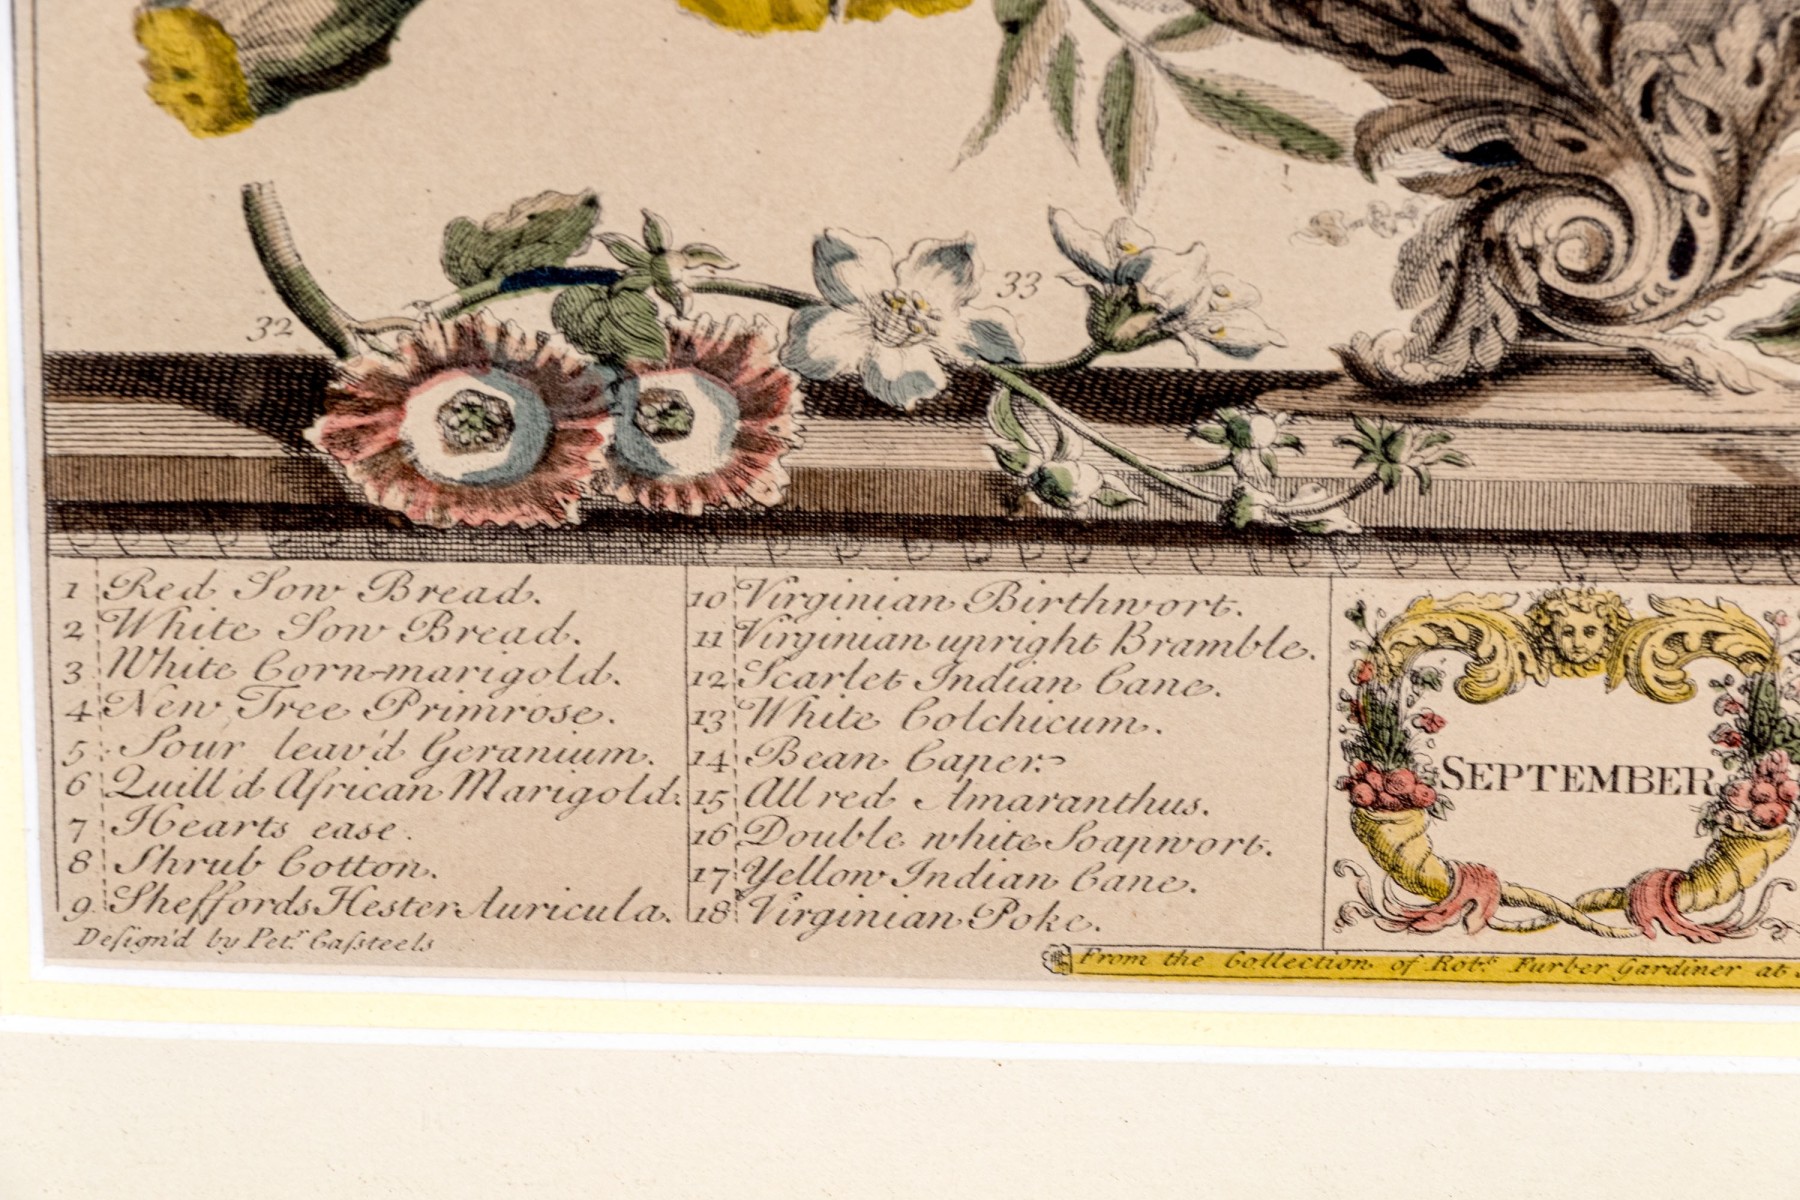 32
33
1 Red Sow Bread.
2 White Sow Bread.
3 White Corn-marigold.
4 New Tree Primrose.
5 Sour leav'd Geranium.
6 Quill'd African Marigold.
7 Hearts ease.
8 Shrub Cotton.
9 Sheffords Hester Auricula.
10 Virginian Birthwort.
11 Virginian upright Bramble.
12 Scarlet Indian Cane.
13 White Colchicum.
14 Bean Caper.
15 All red Amaranthus.
16 Double white Soapwort.
17 Yellow Indian Cane.
18 Virginian Poke.
SEPTEMBER
Deſign'd by Pet.r Caſteels
From the Collection of Rob.t Furber Gardiner at